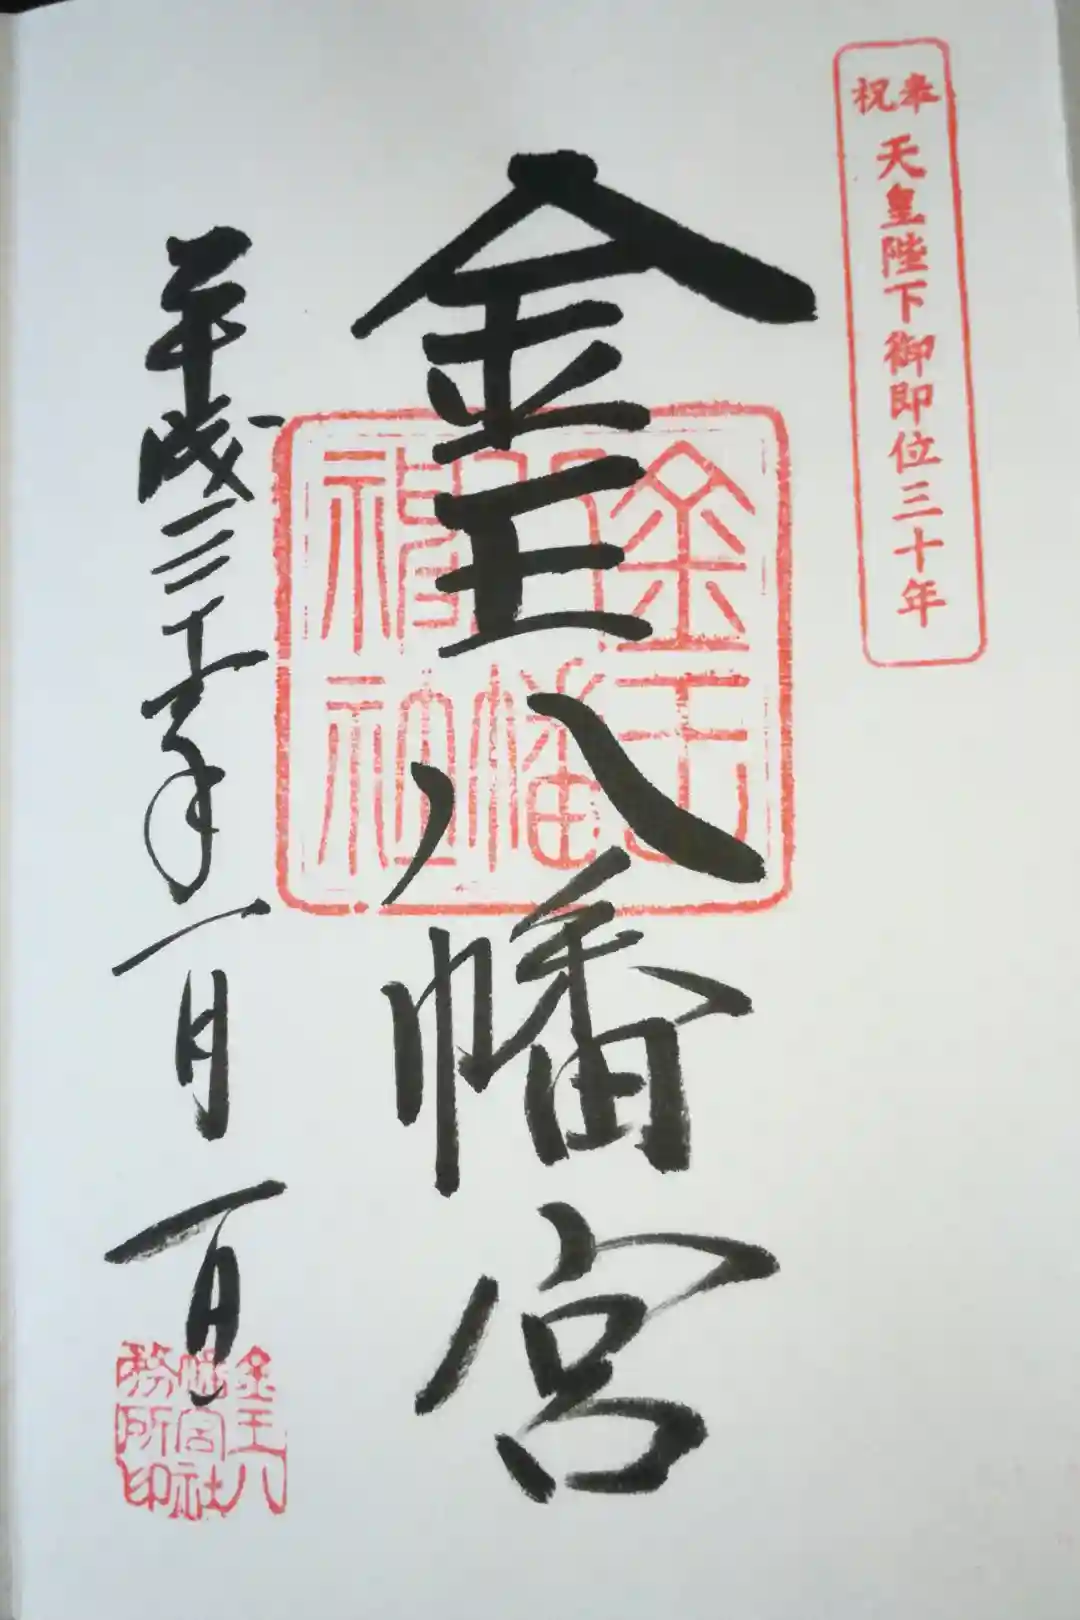 奉祝
天皇陛下御即位三十年
金王八幡宮
金王
八幡
神社
平成三十一年一月一日
金王八
幡宮社
務所印